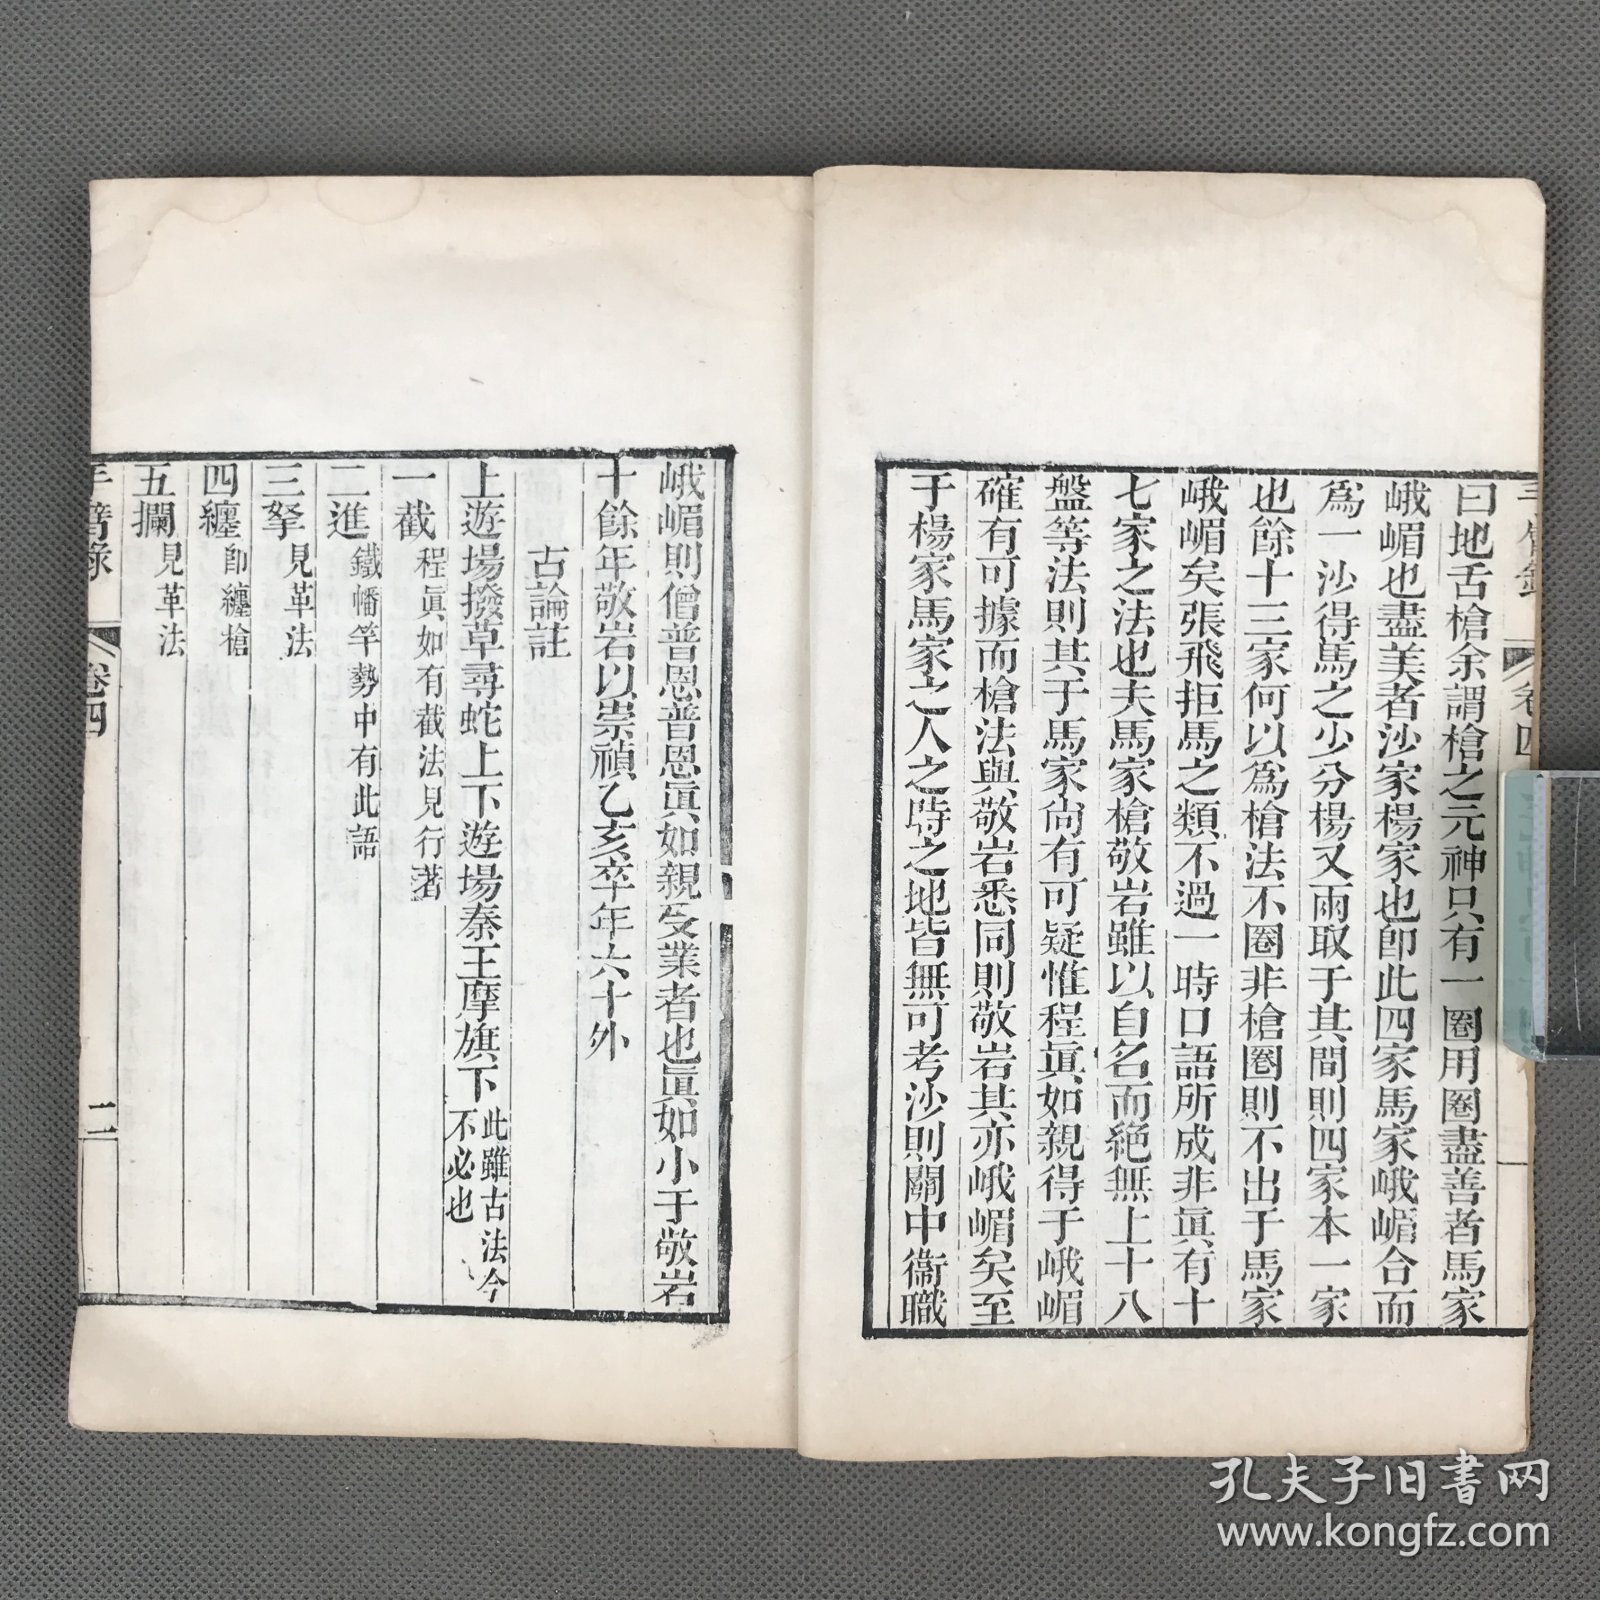 曰地舌槍余謂槍之元神只有一圈用圈盡善者馬家
峨嵋也盡美者沙家楊家也卽此四家馬家峨嵋合而
爲一沙得馬之少分楊又兩取于其間則四家本一家
也餘十三家何以爲槍法不圈非槍圈則不出于馬家
峨嵋矣張飛拒馬之類不過一時口語所成非眞有十
七家之法也夫馬家槍敬岩雖以自名而絕無上十八
盤等法則其于馬家尙有可疑惟程眞如親得于峨嵋
確有可據而槍法與敬岩悉同則敬岩其亦峨嵋矣至
于楊家馬家之人之時之地皆無可考沙則關中衞職
峨嵋則僧普恩普恩眞如親受業者也眞如小于敬岩
十餘年敬岩以崇禎乙亥卒年六十外
古論註
上遊場撥草尋蛇上下遊場秦王摩旗下此雖古法今
不必也
一截程眞如有截法見行著
二進鐵幡竿勢中有此語
三拏見革法
四纏卽纏槍
五攔見革法
手臂錄 卷四 二
孔夫子旧書网
www.kongfz.com